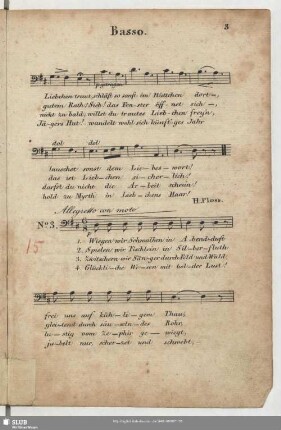 Basso.
3
Liebchen traut, schläft so sanft im Hüttchen dort-
gutem Rath! Sieh! das Fen-ster öff-net sich-,
nicht zu bald; willst du trautes Lieb-chen frey'n,
Jä-gers Hut! wandelt wohl sich künft'ges Jahr
dol dol
lauschet sonst dem Lie-bes-wort!
das ist Lieb-chen si-cher-lich!
darfst du nicht die Ar-beit scheun!
bald zu Myrth in Lieb-chens Haar!
H. Ploss.
Allegretto con moto
No 3.
15
1. Wiegen wir Schwalben in A-bend-duft
2. Spielen wir Fischlein in Sil-ber-fluth
3. Zwitschern wir Sänger durch Feld und Wald;
4. Glückli-che We-sen mit hol-der Lust!
frei uns auf küh-li-gem Thau;
glei-tend durch säu-seln-des Rohr;
lu-stig vom Ze-phir ge-wiegt;
ju-belt nur, scher-zet und schwebt,
SLUB